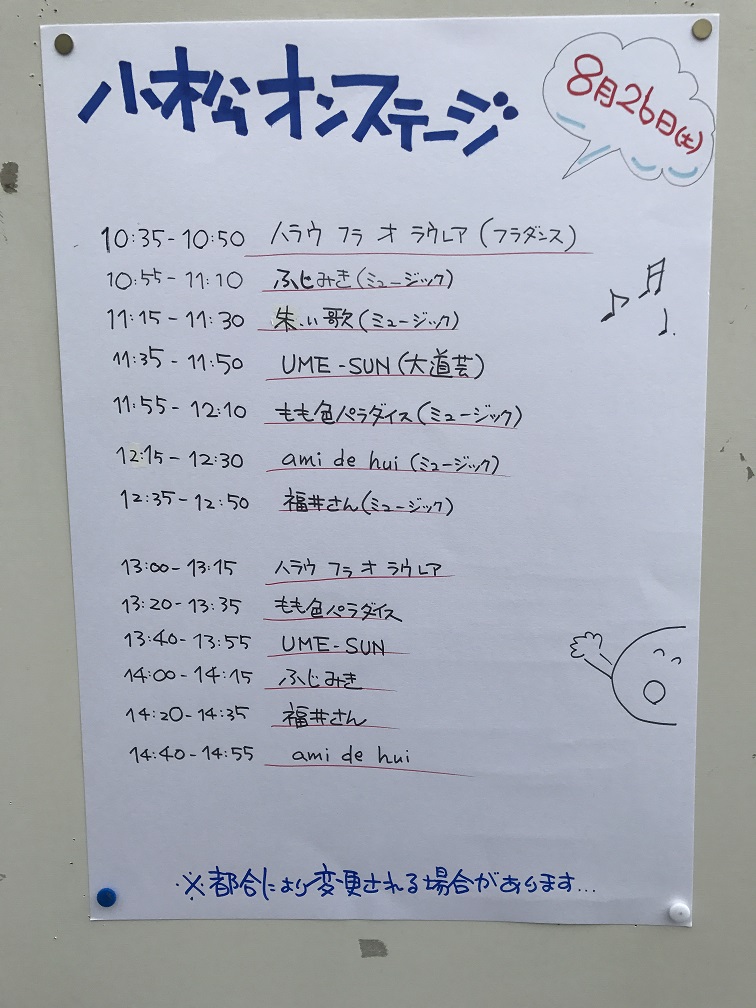 小松オンステージ
8月26日(土)
10:35-10:50 ハラウ フラ オ ラウレア(フラダンス)
10:55-11:10 ふじみき(ミュージック)
11:15-11:30 朱い歌(ミュージック)
11:35-11:50 UME-SUN(大道芸)
11:55-12:10 もも色パラダイス(ミュージック)
12:15-12:30 ami de hui(ミュージック)
12:35-12:50 福井さん(ミュージック)
13:00-13:15 ハラウ フラ オ ラウレア
13:20-13:35 もも色パラダイス
13:40-13:55 UME-SUN
14:00-14:15 ふじみき
14:20-14:35 福井さん
14:40-14:55 ami de hui
※都合により変更される場合があります...